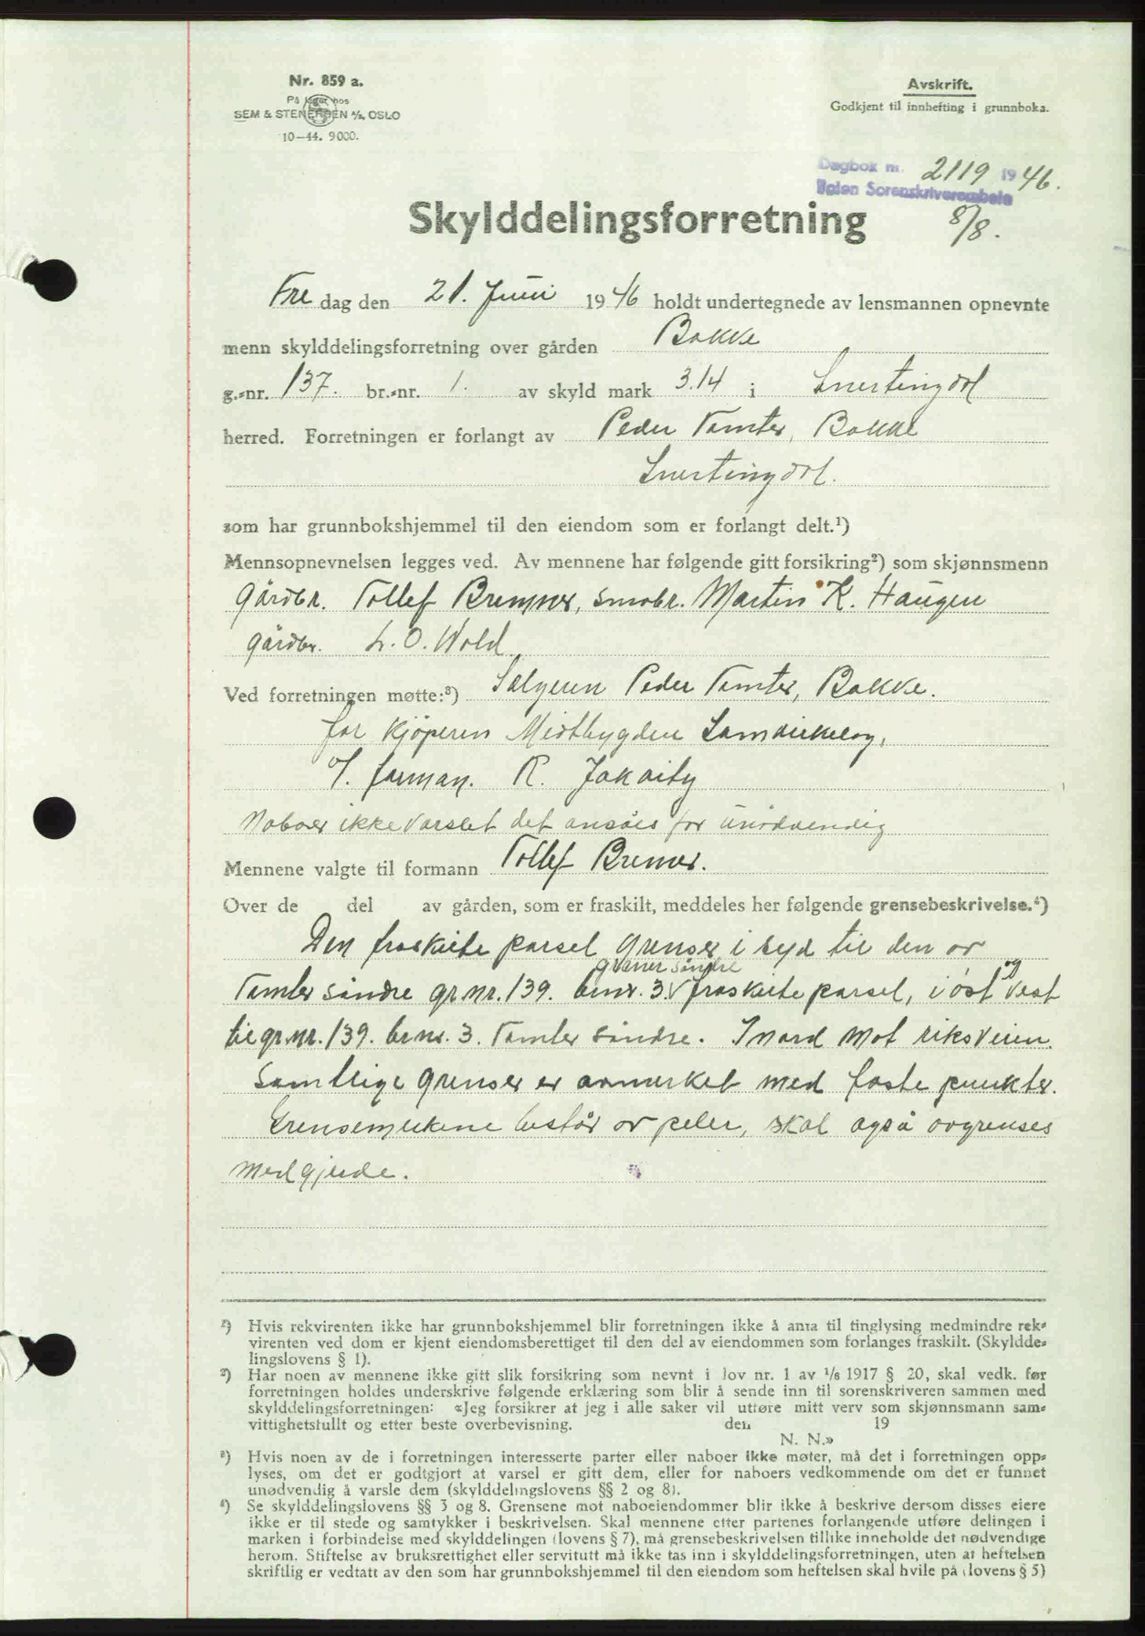 Nr. 859 a.
På lager hos
SEM & STENERSEN A/S, OSLO
10-44. 9000.
Avskrift.
Godkjent til innhefting i grunnboka.
Dagbok nr. 2119 1946.
Toten Sorenskriverembete
8/8.
Skylddelingsforretning
Fre dag den 21. Juni 1946 holdt undertegnede av lensmannen opnevnte
menn skylddelingsforretning over gården Bakke
g.-nr. 137. br.-nr. 1. av skyld mark 3.14 i Snertingdal
herred. Forretningen er forlangt av Peder Tømter, Bakke
Snertingdal.
som har grunnbokshjemmel til den eiendom som er forlangt delt.¹)
Mennsopnevnelsen legges ved. Av mennene har følgende gitt forsikring²) som skjønnsmenn
gårdbr. Tollef Bremner, småbr. Martin K. Haugen
gårdbr. L. O. Wold
Ved forretningen møtte:³) Selgeren Peder Tømter, Bakke.
for kjøperen Midtbygden
v/ forman. R.
Naboer ikke varslet det ansåes for unødvendig
Mennene valgte til formann Tollef Bremer.
Over de del av gården, som er fraskilt, meddeles her følgende grensebeskrivelse.⁴)
Den fraskilte parsel grenser i syd til den av
Tømter søndre gr.nr. 139. br.nr. 3. V fraskilte parsel, i øst og vest
til gr.nr. 139. br.nr. 3. Tømter søndre. I nord mot riksveien.
Samtlige grenser er avmerket med faste punkter.
Grensemerkene består av peler, skal også avgrenses
med gjerde.
¹) Hvis rekvirenten ikke har grunnbokshjemmel blir forretningen ikke å anta til tinglysing medmindre rek-
virenten ved dom er kjent eiendomsberettiget til den del av eiendommen som forlanges fraskilt. (Skyldde-
lingslovens § 1).
²) Har noen av mennene ikke gitt slik forsikring som nevnt i lov nr. 1 av 1/6 1917 § 20, skal vedk. før
forretningen holdes underskrive følgende erklæring som blir å sende inn til sorenskriveren sammen med
skylddelingsforretningen: «Jeg forsikrer at jeg i alle saker vil utføre mitt verv som skjønnsmann sam-
vittighetsfullt og etter beste overbevisning. den 19
N. N.»
³) Hvis noen av de i forretningen interesserte parter eller naboer ikke møter, må det i forretningen opp-
lyses, om det er godtgjort at varsel er gitt dem, eller for naboers vedkommende om det er funnet
unødvendig å varsle dem (skylddelingslovens §§ 2 og 8).
⁴) Se skylddelingslovens §§ 3 og 8. Grensene mot naboeiendommer blir ikke å beskrive dersom disses eiere
ikke er til stede og samtykker i beskrivelsen. Skal mennene etter partenes forlangende utføre delingen i
marken i forbindelse med skylddelingen (lovens § 7), må grensebeskrivelsen tillike inneholde det nødvendige
herom. Stiftelse av bruksrettighet eller servitutt må ikke tas inn i skylddelingsforretningen, uten at heftelsen
skriftlig er vedtatt av den som har grunnbokshjemmel til den eiendom som heftelsen skal hvile på (lovens § 5)